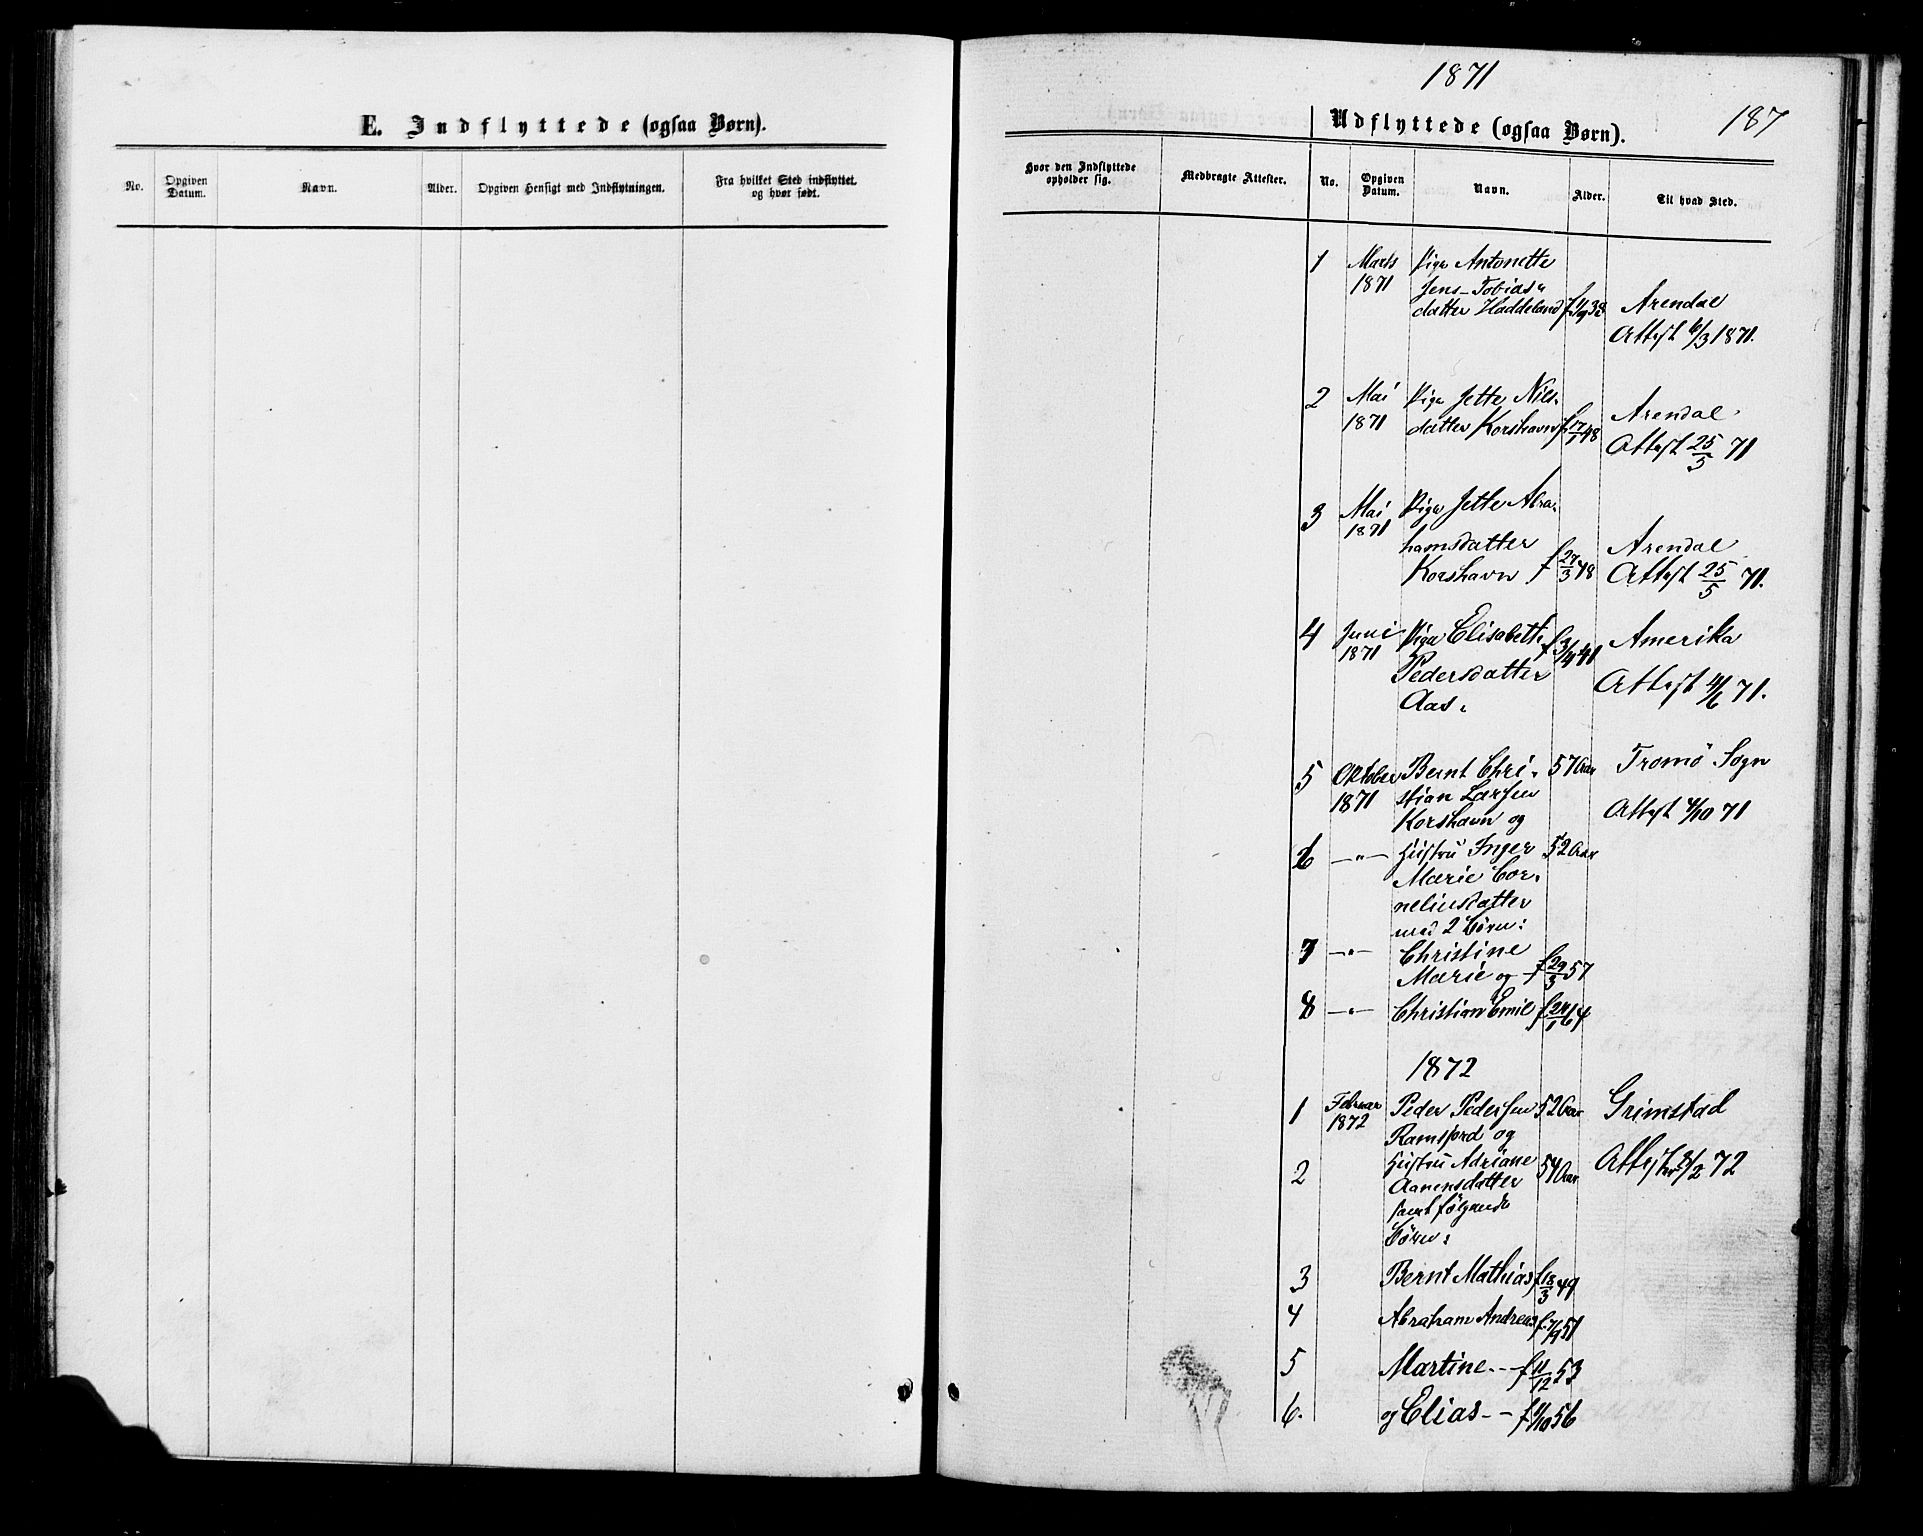 E. Indflyttede (ogsaa Børn).
No.
Opgiven
Datum.
Navn.
Alder.
Opgiven Hensigt med Indflytningen.
Fra hvilket Sted indflyttet.
og hvor født.
1871
187
Udflyttede (ogsaa Børn).
Hvor den Indflyttede
opholder sig.
Medbragte Attester.
No.
Opgiven
Datum.
Navn.
Alder.
Til hvad Sted.
1 Marts Pige Antonette
1871 Jens-Tobias-
datter Haddeland 38 Arendal
Attest 6/3 1871.
2 Mai Pige Jette Nils- Arendal
1871 datter Korshavn f 17/1 48
Attest 25/5 71
3 Mai Pige Jette Abra-
1871
hamsdatter Arendal
Korshavn f 27/3 48 Attest 25/5 71.
4 Juni Pige Elisabeth f 3/4 41 Amerika
1871 Pedersdatter Attest 4/6 71.
Aas.
5 Oktober Bernt Chri- 57 Aar Tromö Sogn
1871 stian Larsen Attest 4/10 71
Korshavn og
6 -"- Hustru Inger 52 Aar
Marie Cor-
neliusdatter
med 2 Börn:
7 -"- Christine
Marie og f 29/3 57
8 -"- Christian Emil f 24/1 64
1872
1 Februar Peder Pedersen 52 Aar Grimstad
1872 Ramsfjord og
2 Hustru Adriane 54 Aar Attest 72
Aanensdatter
samt fölgende
Börn:
3 Bernt Mathias f 18/3 49
4 Abraham Andreas f 7/9 51
5 Martine -- f 11/12 53
6. og Elias -- f 11/10 56